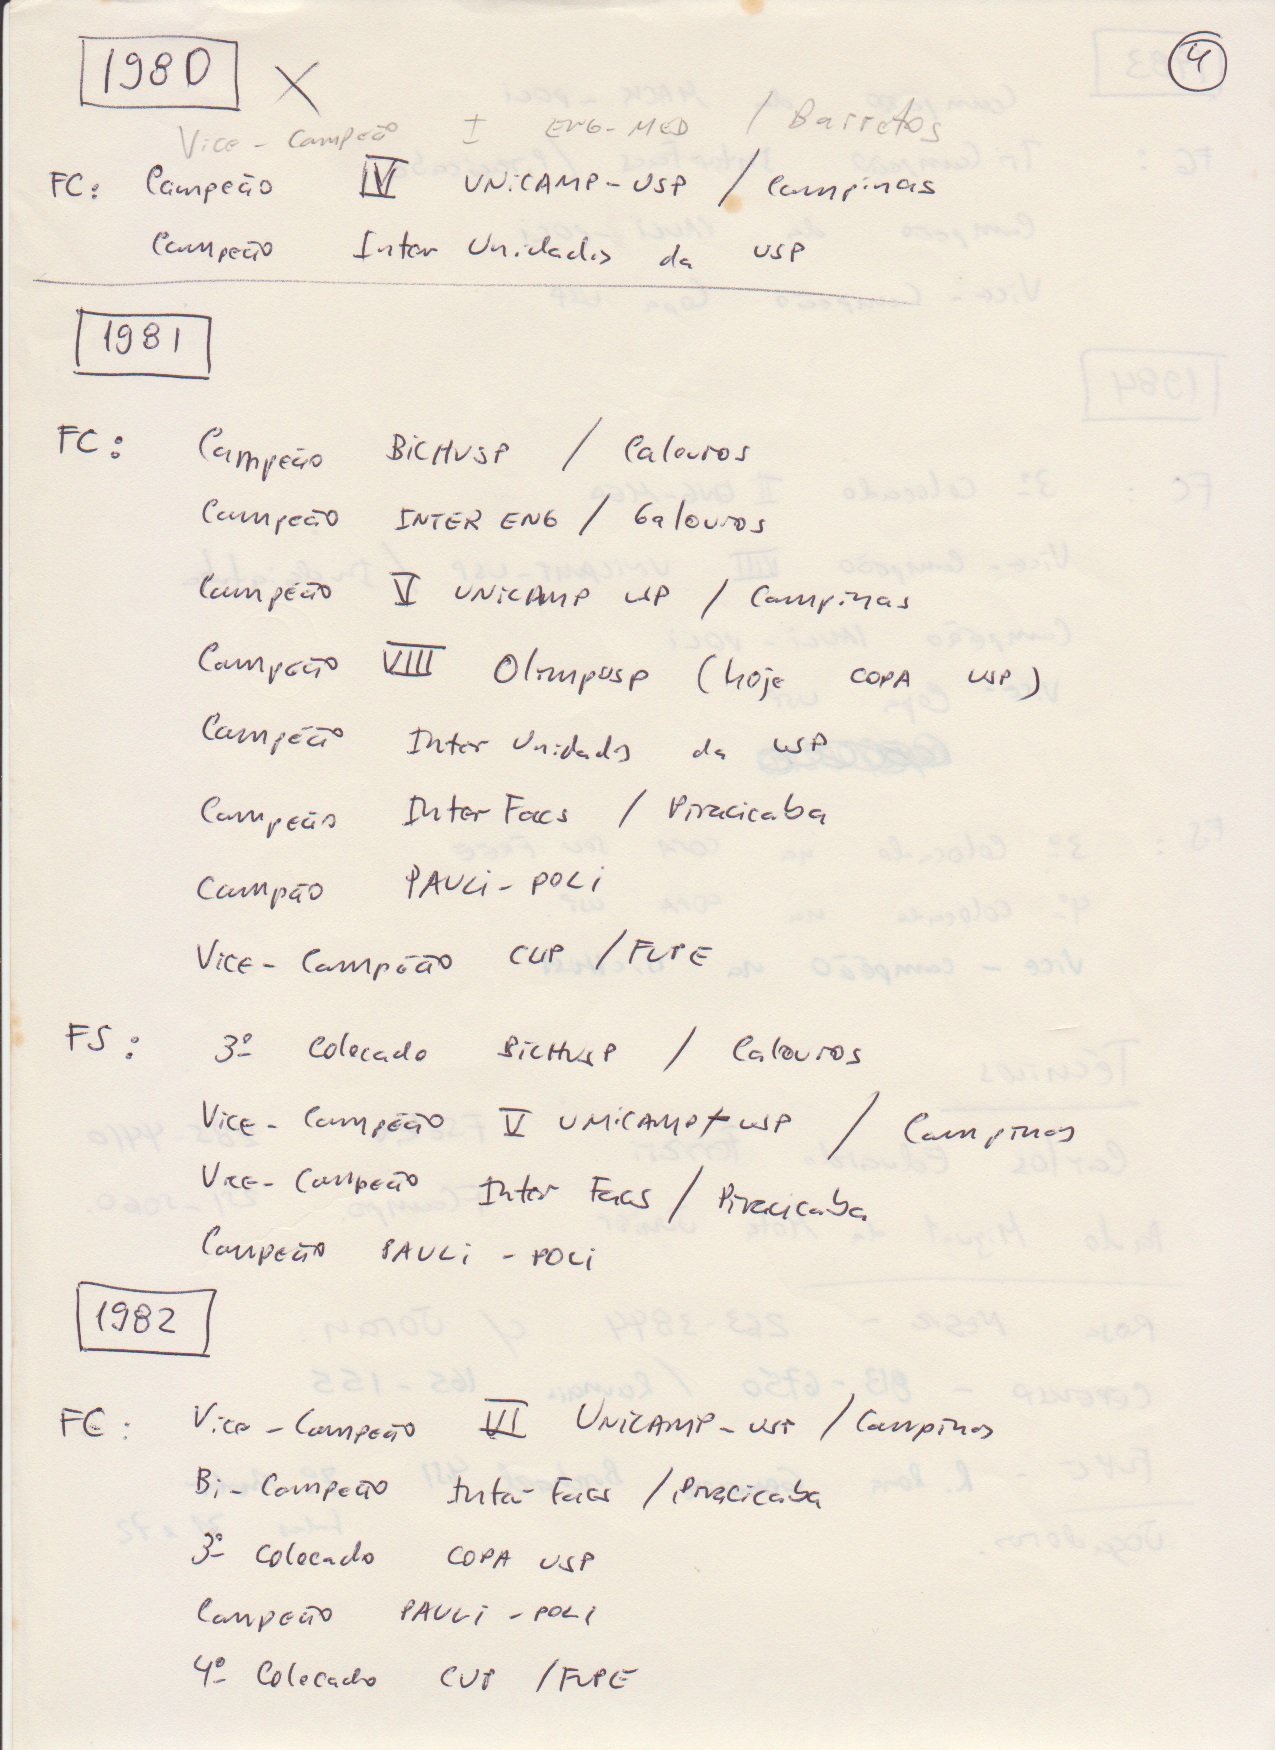 1980 X
4
Vice - Campeão I ENG-MED / Barretos
FC: Campeão IV UNICAMP-USP / Campinas
Campeão Inter Unidades da USP
1981
FC: Campeão BICHUSP / Calouros
Campeão INTER ENG / Calouros
Campeão V UNICAMP USP / Campinas
Campeão VIII Olimpusp (hoje COPA USP)
Campeão Inter Unidades da USP
Campeão Inter Facs / Piracicaba
Campão PAULI-POLI
Vice - Campeão CUP / FUPE
FS: 3º Colocado BICHUSP / Calouros
Vice - Campeão V UNICAMP + USP / Campinas
Vice - Campeão Inter Facs / Piracicaba
Campeão PAULI - POLI
1982
FC: Vice - Campeão VI UNICAMP - USP / Campinas
Bi - Campeão Inter Facs / Piracicaba
3º Colocado COPA USP
Campeão PAULI - POLI
4º Colocado CUP / FUPE